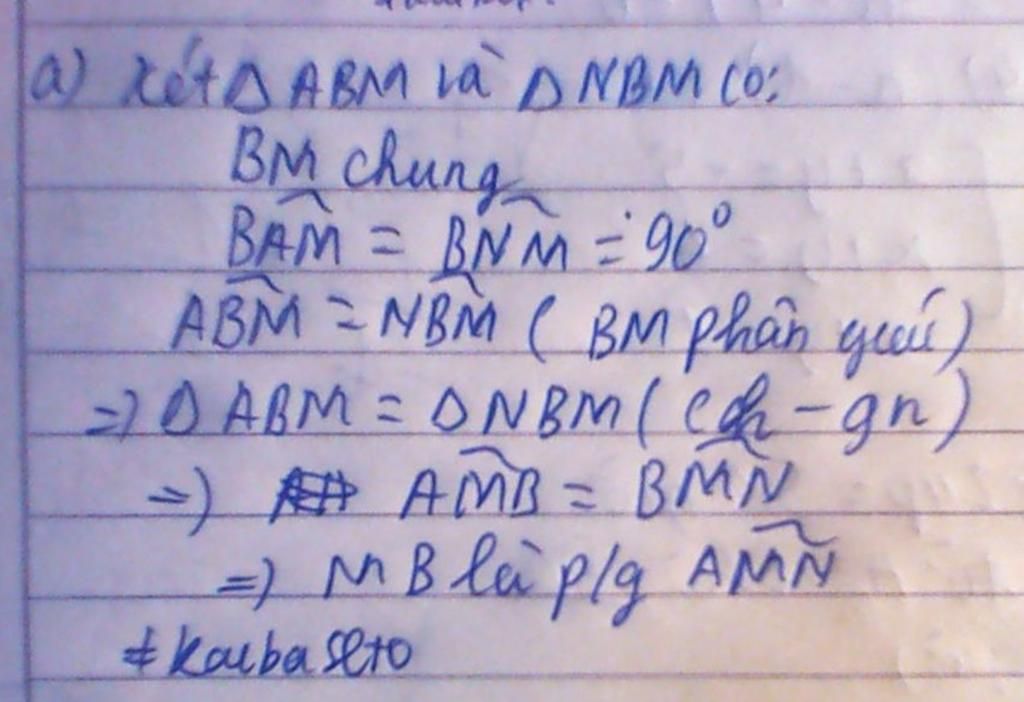 a) Xét Δ ABM và Δ NBM có:
BM chung
BAM = BNM = 90°
ABM = NBM ( BM phân giác)
=> Δ ABM = Δ NBM ( ch - gn )
=> AMB = BMN
=> MB là p/g AMN
# Kaiba Seto